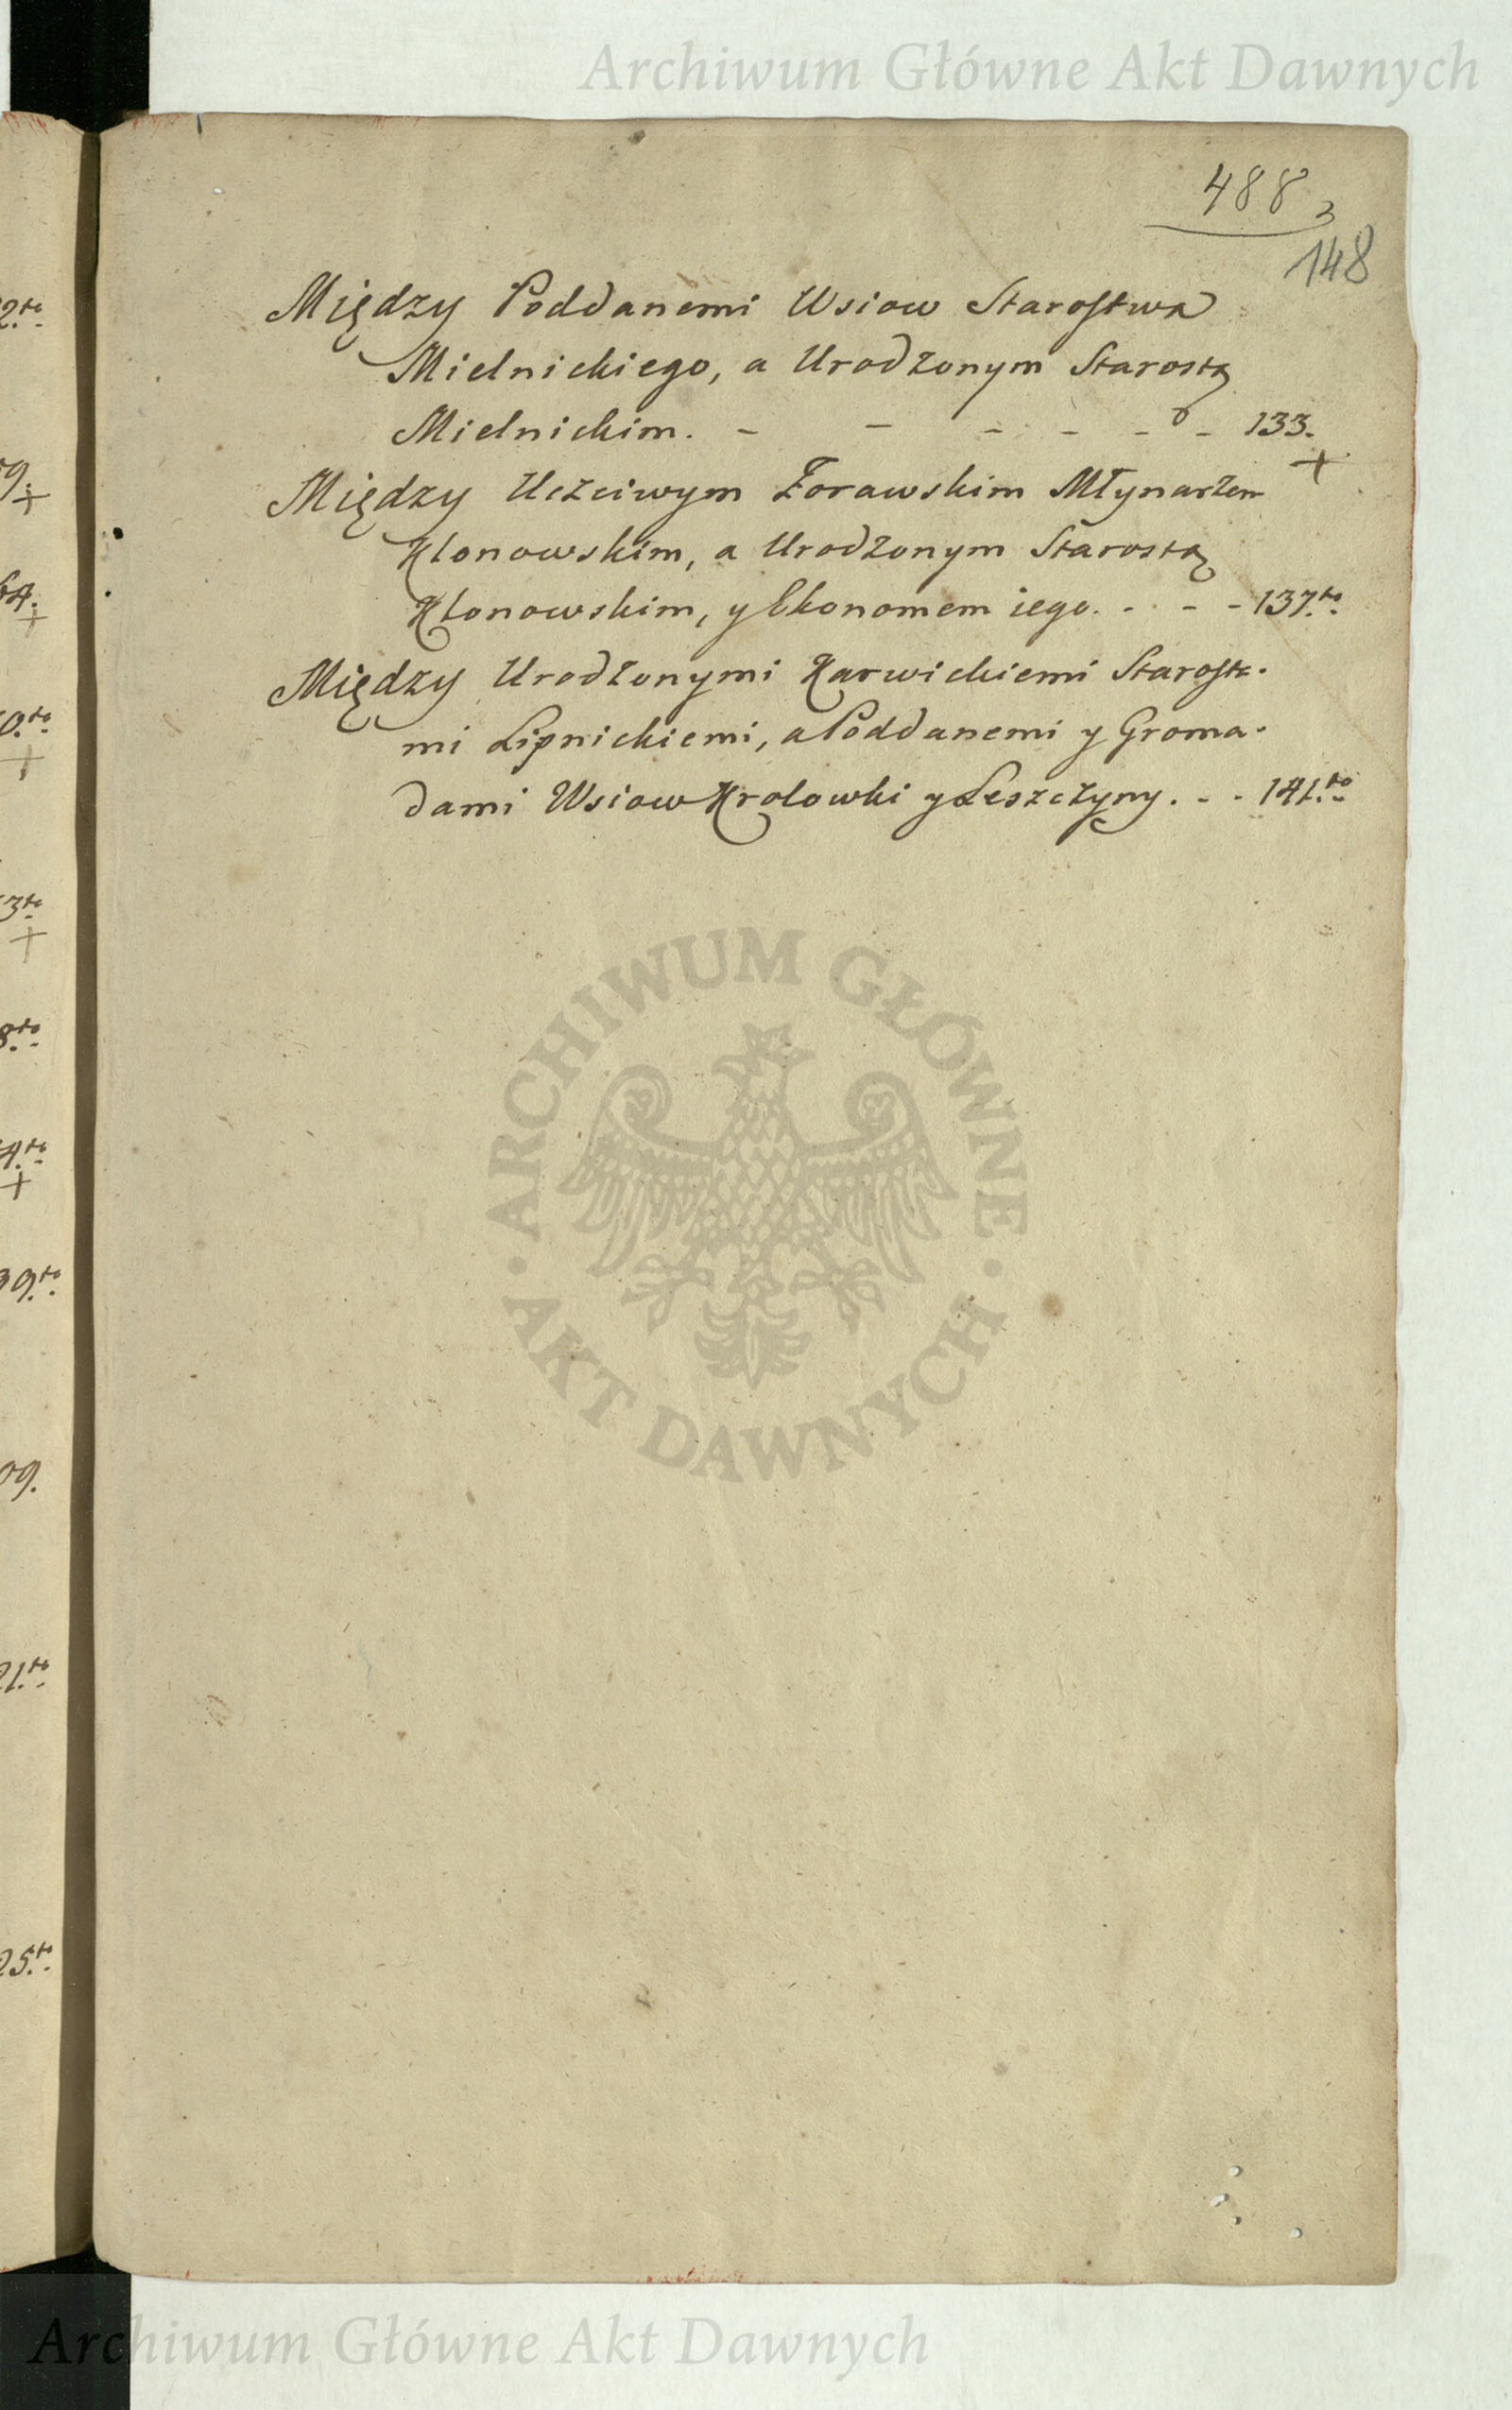 Archiwum Główne Akt Dawnych
488
148
Między Poddanemi Wsiow Starostwa
Mielnickiego, a Urodzonym Starostą
Mielnickim. - - - - - - 133.
Między Uczciwym Żorawskim Młynarzem
Klonowskim, a Urodzonym Starostą
Klonowskim, y Ekonomem iego. - - - 137.to
Między Urodzonymi Karwickiemi Starosta-
mi Lipnickiemi, a Poddanemi y Groma-
dami Wsiow Krolowki y Leszczyny. - - 141.to
ARCHIWUM GŁÓWNE
AKT DAWNYCH
Archiwum Główne Akt Dawnych